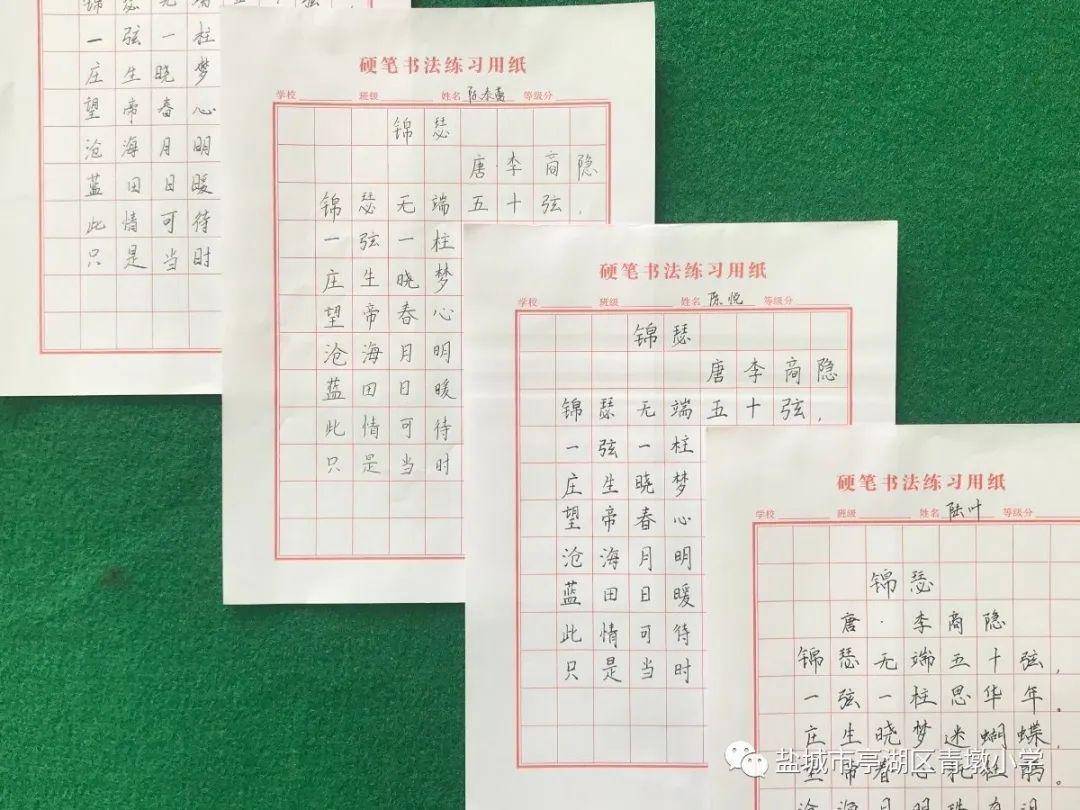 一弦一柱
庄生晓梦
望帝春心
沧海月明
蓝田日暖
此情可待
只是当时
硬笔书法练习用纸
学校 班级 姓名 等级分
锦瑟
唐·李商隐
锦瑟无端五十弦，
一弦一柱
庄生晓梦
望帝春心
沧海月明
蓝田日暖
此情可待
只是当时
硬笔书法练习用纸
学校 班级 姓名 陈悦 等级分
锦瑟
唐李商隐
锦瑟无端五十弦，
一弦一柱
庄生晓梦
望帝春心
沧海月明
蓝田日暖
此情可待
只是当时
硬笔书法练习用纸
学校 班级 姓名 陆叶 等级分
锦瑟
唐·李商隐
锦瑟无端五十弦，
一弦一柱思华年。
庄生晓梦迷蝴蝶，
望帝春心托
盐城市亭湖区青墩小学